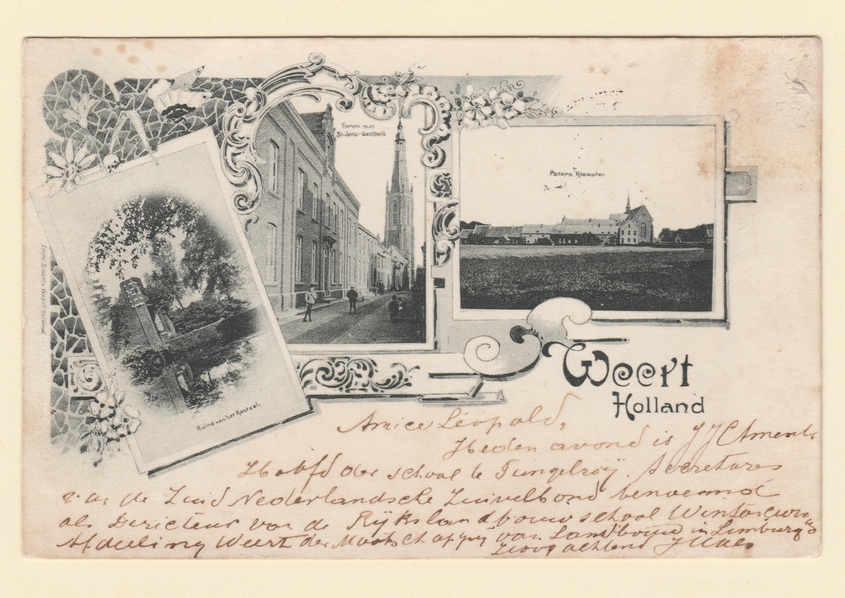 Toren met
St. Jans-Gasthuis
Paters Klooster
Ruine van het Kasteel.
Weert
Holland
Amice Léopold,
Heden avond is
Hoofd der school te Tungelroÿ, Secretaris
v. d. de Zuid Nederlandsche Zuivelbond benoemd
als Directeur van de Rijkslandbouwschool
Afdeeling Weert der Maatschappij van Landbouw in Limburg
Hoogachtend